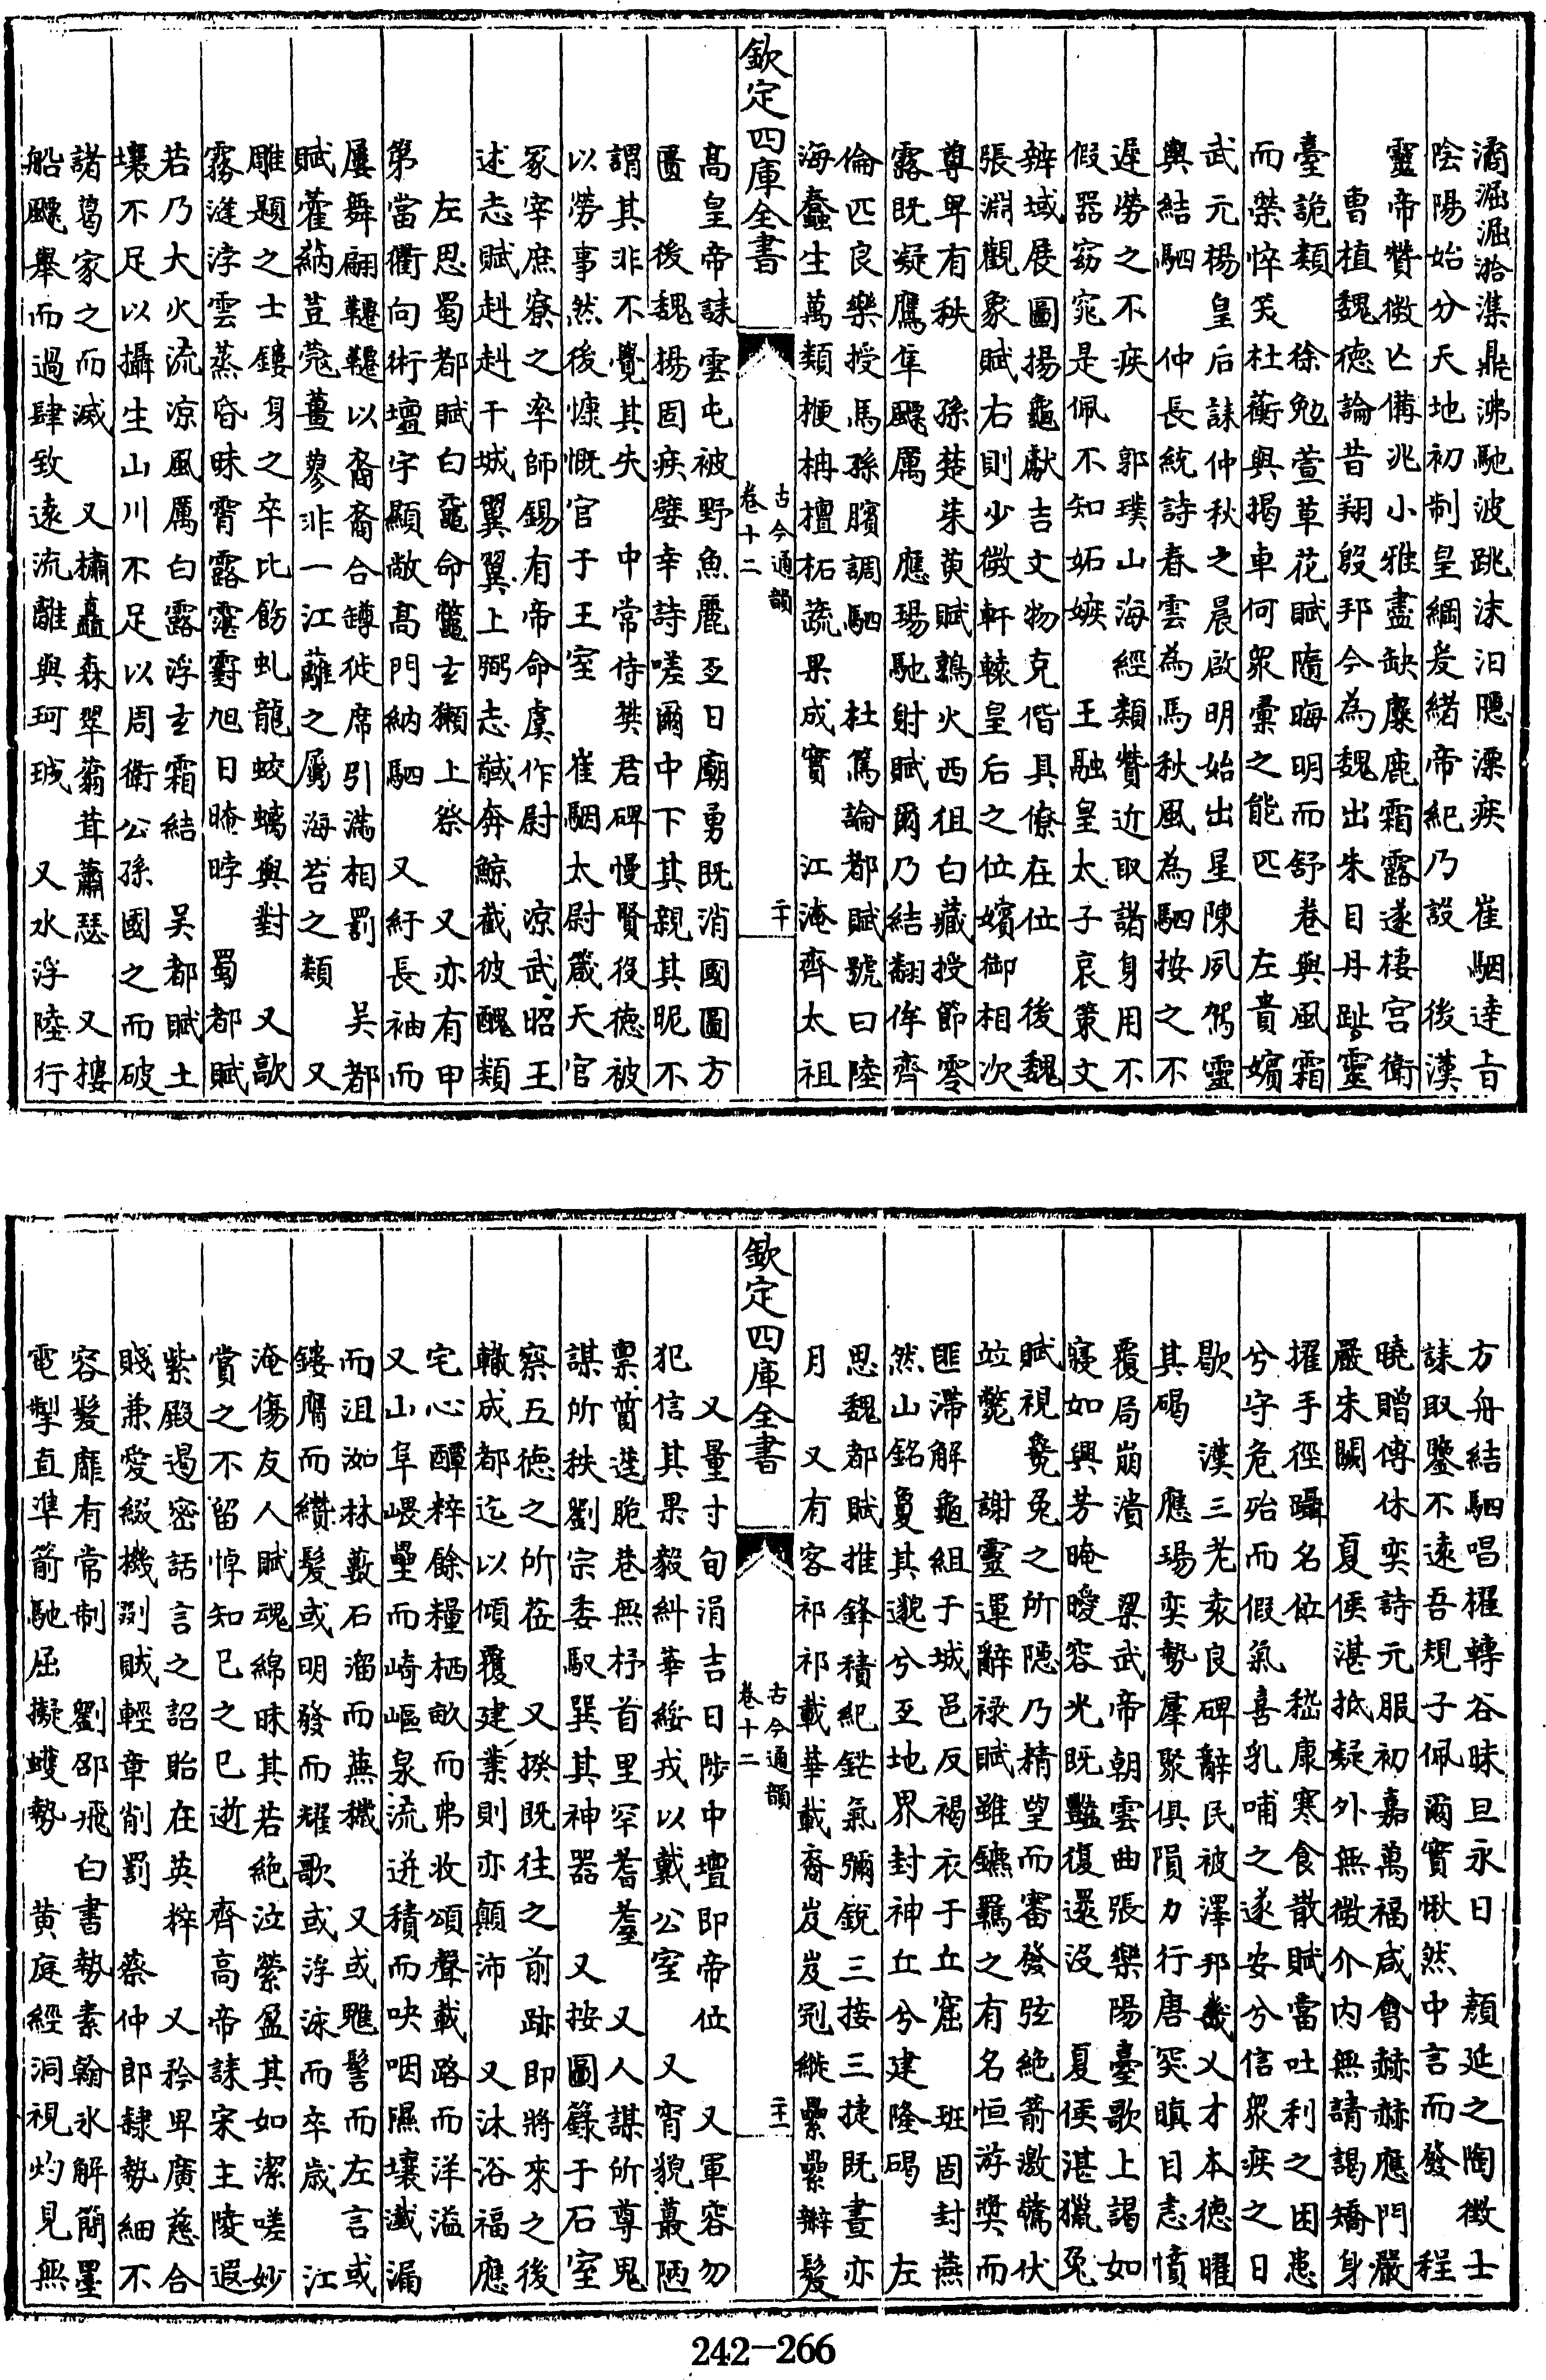 潏淈淈湁潗鼎沸馳波跳沫汩㴔漂疾　崔駰達旨
陰陽始分天地初制皇綱爰緒帝紀乃設　後漢
靈帝贊徵亡備兆小雅盡缺麋鹿霜露遂棲宮衛
曹植魏德論昔翔殷邦今為魏出朱目丹趾靈
臺詭類　徐勉萱草花賦隨晦明而舒卷與風霜
而榮悴笑杜蘅與揭車何衆彚之能匹　左貴嬪
武元楊皇后誄仲秋之晨啟明始出星陳夙駕靈
輿結駟　仲長統詩春雲為馬秋風為駟按之不
遲勞之不疾　郭璞山海經類贊近取諸身用不
假器窈窕是佩不知妬嫉　王融皇太子哀策文
辨域展圖揚龜獻吉文物克偕具僚在位　後魏
張淵觀象賦右則少微軒轅皇后之位嬪御相次
尊卑有秩　孫楚茱萸賦鶉火西徂白藏授節零
露既凝鷹隼飈厲　應瑒馳射賦爾乃結翻侔齊
倫匹良樂授馬孫臏調駟　杜篤論都賦號曰陸
海蠢生萬類楩柟檀柘蔬果成實　江淹齊太祖
欽定四庫全書
古今通韻
卷十二
二十
高皇帝誄雲屯被野魚麗亙日廟勇既消國圖方
匱　後魏揚固疾嬖幸詩嗟爾中下其親其昵不
謂其非不覺其失　中常侍樊君碑慢賢役德被
以勞事然後慷慨官于王室　崔駰太尉箴天官
冢宰庶寮之率師錫有帝命虞作尉　涼武昭王
述志賦赳赳干城翼翼上弼志馘奔鯨截彼醜類
左思蜀都賦白黿命鼈玄獺上祭　又亦有甲
第當衢向術壇宇顯敞高門納駟　又紆長袖而
屢舞翩躚躚以裔裔合罇徙席引滿相罰　吳都
賦藿蒳荳蔻薑蓼非一江蘺之屬海苔之類　又
雕題之士鏤身之卒比飭虬龍蛟螭與對　又歊
霧漨浡雲蒸昏昧霄露霮䨴旭日晻𣅿　蜀都賦
若乃大火流涼風厲白露浮玄霜結　吳都賦土
壤不足以攝生山川不足以周衛公孫國之而破
諸葛家之而滅　又橚矗森翠蓊茸蕭瑟　又摟
船飈舉而過肆致遠流離與珂珬　又水浮陸行
方舟結駟唱櫂轉谷昧旦永日　顔延之陶徵士
誄取鑒不遠吾規子佩爾實愀然中言而發　程
曉贈傅休奕詩元服初嘉萬福咸會赫赫應門嚴
嚴朱闕　夏侯湛抵疑外無微介內無請謁矯身
擢手徑躡名位　嵇康寒食散賦當吐利之困患
兮守危殆而假氣喜乳哺之遂安兮信衆疾之日
歇　漢三老袁良碑辭民被澤邦畿乂才本德曜
其碣　應瑒奕勢羣聚俱隕力行唐突瞋目恚憤
覆局崩潰　梁武帝朝雲曲張樂陽臺歌上謁如
寢如興芳晻曖容光既豔復還沒　夏侯湛獵兔
賦視㚟兔之所隱乃精望而審發弦絶箭激驚伏
竝斃　謝靈運辭祿賦雖鑣羈之有名恒游獎而
匪滯解龜組于城邑反褐衣于丘窟　班固封燕
然山銘敻其邈兮亙地界封神丘兮建隆碣　左
思魏都賦推鋒積紀鋩氣彌銳三接三捷既晝亦
月　又有客祁祁載華載裔岌岌冠縰纍纍辮髮
欽定四庫全書
古今通韻
卷十二
二十一
又量寸旬涓吉日陟中壇即帝位　又軍容勿
犯信其果毅糾華綏戎以戴公室　又宵貌蕞陋
禀質遳脆巷無杼首里罕耆耋　又人謀所尊鬼
謀所秩劉宗委馭巽其神器　又按圖籙于石室
察五德之所莅　又揆既往之前跡即將來之後
轍成都迄以傾覆建業則亦顛沛　又沐浴福應
宅心醰粹餘糧栖畝而弗收頌聲載路而洋溢
又山阜㟪壘而崎嶇泉流迸積而咉咽隰壤瀸漏
而沮洳林藪石㵎而蕪穢　又或魋髻而左言或
鏤膚而鑽髮或明發而耀歌或浮泳而卒歲　江
淹傷友人賦魂綿昧其若絶泣縈盈其如潔嗟妙
賞之不留悼知已之已逝　齊高帝誄宋主陵遐
紫殿遏密話言之詔貽在英粹　又矜卑廣慈合
賤兼愛綴機測賊輕章削罰　蔡仲郎隸勢細不
容髮靡有常制　劉邵飛白書勢素翰氷解簡墨
電掣直凖箭馳屈擬蠖勢　黄庭經洞視灼見無
242-266